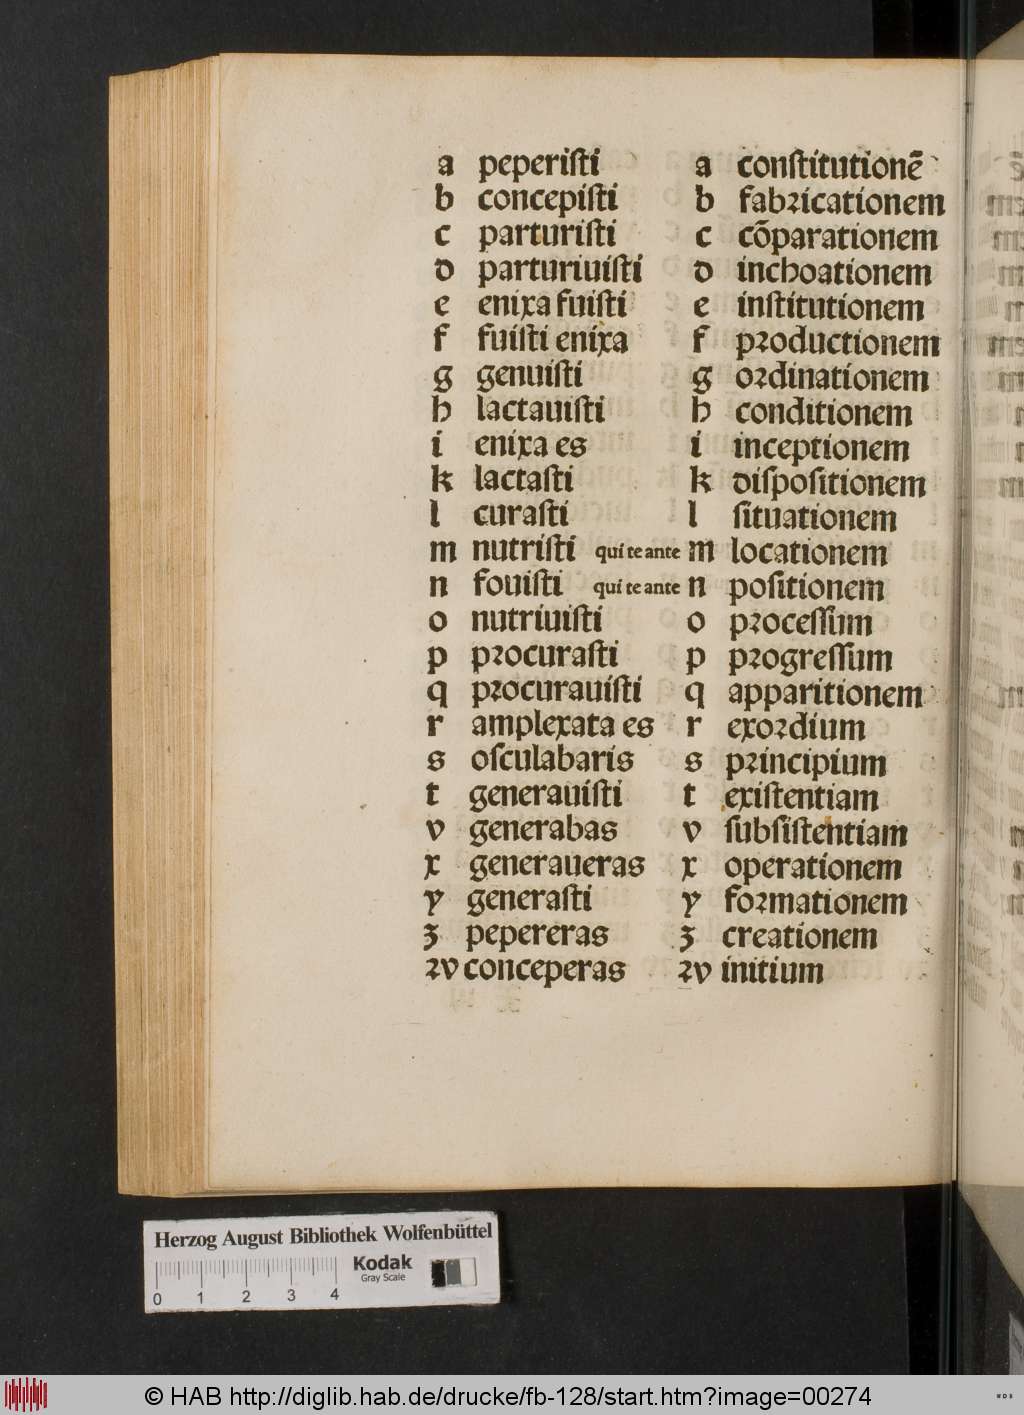 a peperiſti a conſtitutionē
b concepiſti b fabꝛicationem
c parturiſti c cōparationem
d parturiuiſti d inchoationem
e enixa fuiſti e inſtitutionem
f fuiſti enixa f pꝛoductionem
g genuiſti g oꝛdinationem
h lactauiſti h conditionem
i enixa es i inceptionem
k lactaſti k diſpoſitionem
l curaſti l ſituationem
m nutriſti qui te ante m locationem
n fouiſti qui te ante n poſitionem
o nutriuiſti o pꝛoceſſum
p pꝛocuraſti p pꝛogreſſum
q pꝛocurauiſti q apparitionem
r amplexata es r exoꝛdium
s oſculabaris s pꝛincipium
t generauiſti t exiſtentiam
v generabas v ſubſiſtentiam
x generaueras x operationem
y generaſti y foꝛmationem
ʒ pepereras ʒ creationem
ꝛv conceperas ꝛv initium
Herzog August Bibliothek Wolfenbüttel
Kodak
Gray Scale
0 1 2 3 4
© HAB http://diglib.hab.de/drucke/fb-128/start.htm?image=00274